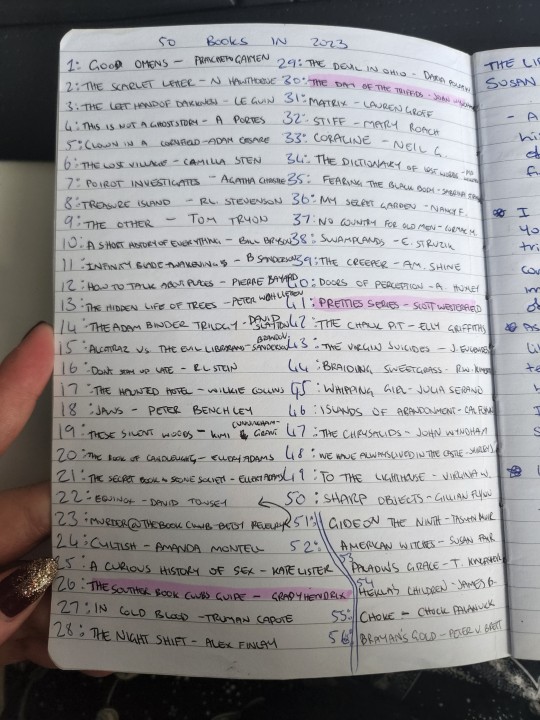 50 BOOKS IN 2023
1: GOOD OMENS - PRATCHETT GAIMEN
2: THE SCARLET LETTER - N HAWTHORNE
3: THE LEFT HAND OF DARKNESS - LE GUIN
4: THIS IS NOT A GHOST STORY - A PORTES
5: CLOWN IN A CORNFIELD - ADAM CESARE
6: THE LOST VILLAGE - CAMILLA STEN
7: POIROT INVESTIGATES - AGATHA CHRISTIE
8: TREASURE ISLAND - R.L. STEVENSON
9: THE OTHER - TOM TRYON
10: A SHORT HISTORY OF EVERYTHING - BILL BRYSON
11: INFINITY BLADE AWAKENINGS - B SANDERSON
12: HOW TO TALK ABOUT PLACES - PIERRE BAYARD
13: THE HIDDEN LIFE OF TREES - PETER WOHLLEBEN
14: THE ADAM BINDER TRILOGY - DAVID SLAYTON
15: ALCATRAZ VS. THE EVIL LIBRARIANS - BRANDON SANDERSON
16: DON'T STAY UP LATE - RL STEIN
17: THE HAUNTED HOTEL - WILKIE COLLINS
18: JAWS - PETER BENCHLEY
19: THESE SILENT WOODS - KIMI CUNNINGHAM GRANT
20: THE BOOK OF CANDLELIGHT - ELLERY ADAMS
21: THE SECRET BOOK & SCONE SOCIETY - ELLERY ADAMS
22: EQUINOX - DAVID TOWSEY
23: MURDER @ THE BOOK CLUB - BETSY REVELRY
24: CULTISH - AMANDA MONTELL
25: A CURIOUS HISTORY OF SEX - KATE LISTER
26: THE SOUTHER BOOK CLUBS GUIDE - GRADY HENDRIX
27: IN COLD BLOOD - TRUMAN CAPOTE
28: THE NIGHT SHIFT - ALEX FINLAY
29: THE DEVIL IN OHIO - DARIA
30: THE DAY OF THE TRIFFIDS - JOHN WYNDHAM
31: MATRIX - LAUREN GROFF
32: STIFF - MARY ROACH
33: CORALINE - NEIL G.
34: THE DICTIONARY OF LOST WORDS
35: FEARING THE BLACK BODY - SABRINA
36: MY SECRET GARDEN - NANCY F.
37: NO COUNTRY FOR OLD MEN - CORMAC M.
38: SWAMPLANDS - E. STRUZIK
39: THE CREEPER - A.M. SHINE
40: DOORS OF PERCEPTION - A. HUXLEY
41: PRETTIES SERIES - SCOTT WESTERFIELD
42: THE CHALK PIT - ELLY GRIFFITHS
43: THE VIRGIN SUICIDES - J. EUGENIDES
44: BRAIDING SWEETGRASS - R.W.
45: WHIPPING GIRL - JULIA SERANO
46: ISLANDS OF ABANDONMENT - CAL FLYN
47: THE CHRYSALIDS - JOHN WYNDHAM
48: WE HAVE ALWAYS LIVED IN THE CASTLE - SHIRLEY J
49: TO THE LIGHTHOUSE - VIRGINIA W.
50: SHARP OBJECTS - GILLIAN FLYNN
51: GIDEON THE NINTH - TASMYN MUIR
52: AMERICAN WITCHES - SUSAN FAIR
53 PALADIN'S GRACE - T. KINGFISHER
54 HEKLA'S CHILDREN - JAMES B.
55: CHOKE - CHUCK PALANUCK
56: BRAYAN'S GOLD - PETER V. BRETT
THE LI
SUSAN